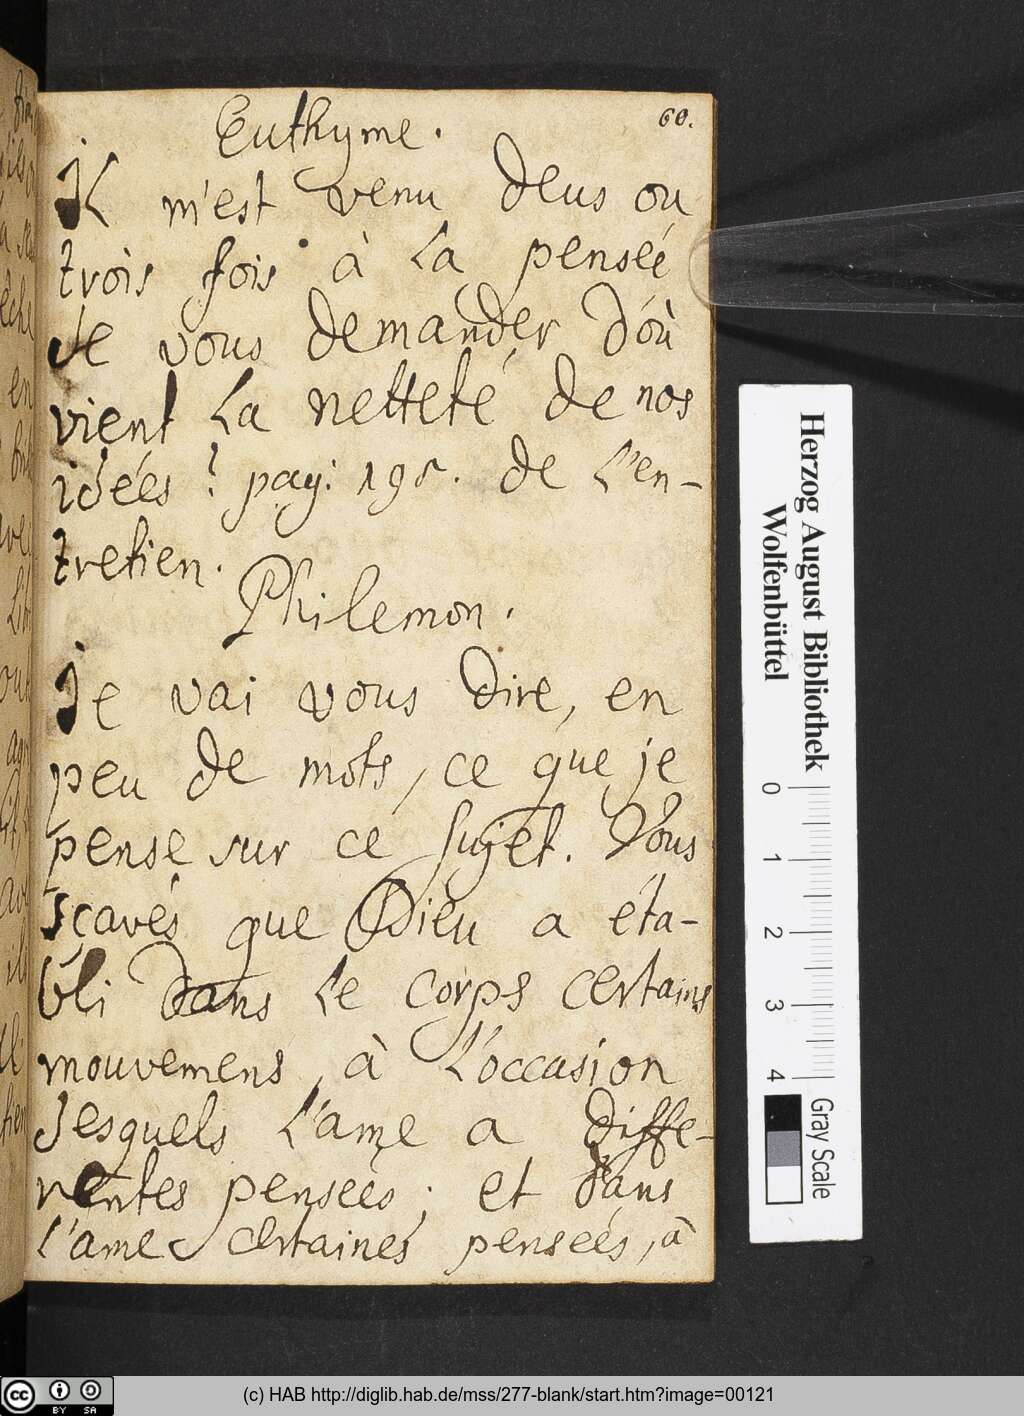 60.
Euthyme.
Il m'est venu deus ou
trois fois à la pensée
de vous demander d'où
vient la netteté de nos
idées? pag: 195. de l'en-
tretien.
Philemon.
Je vai vous dire, en
peu de mots, ce que je
pense sur ce sujet. Vous
sçavés que Dieu a éta-
bli dans le corps certains
mouvemens, à l'occasion
desquels l'ame a diffe-
rentes pensées; et dans
l'ame certaines pensées, à
Herzog August Bibliothek
Wolfenbüttel
0 1 2 3 4
Gray Scale
(c) HAB http://diglib.hab.de/mss/277-blank/start.htm?image=00121
cc BY SA